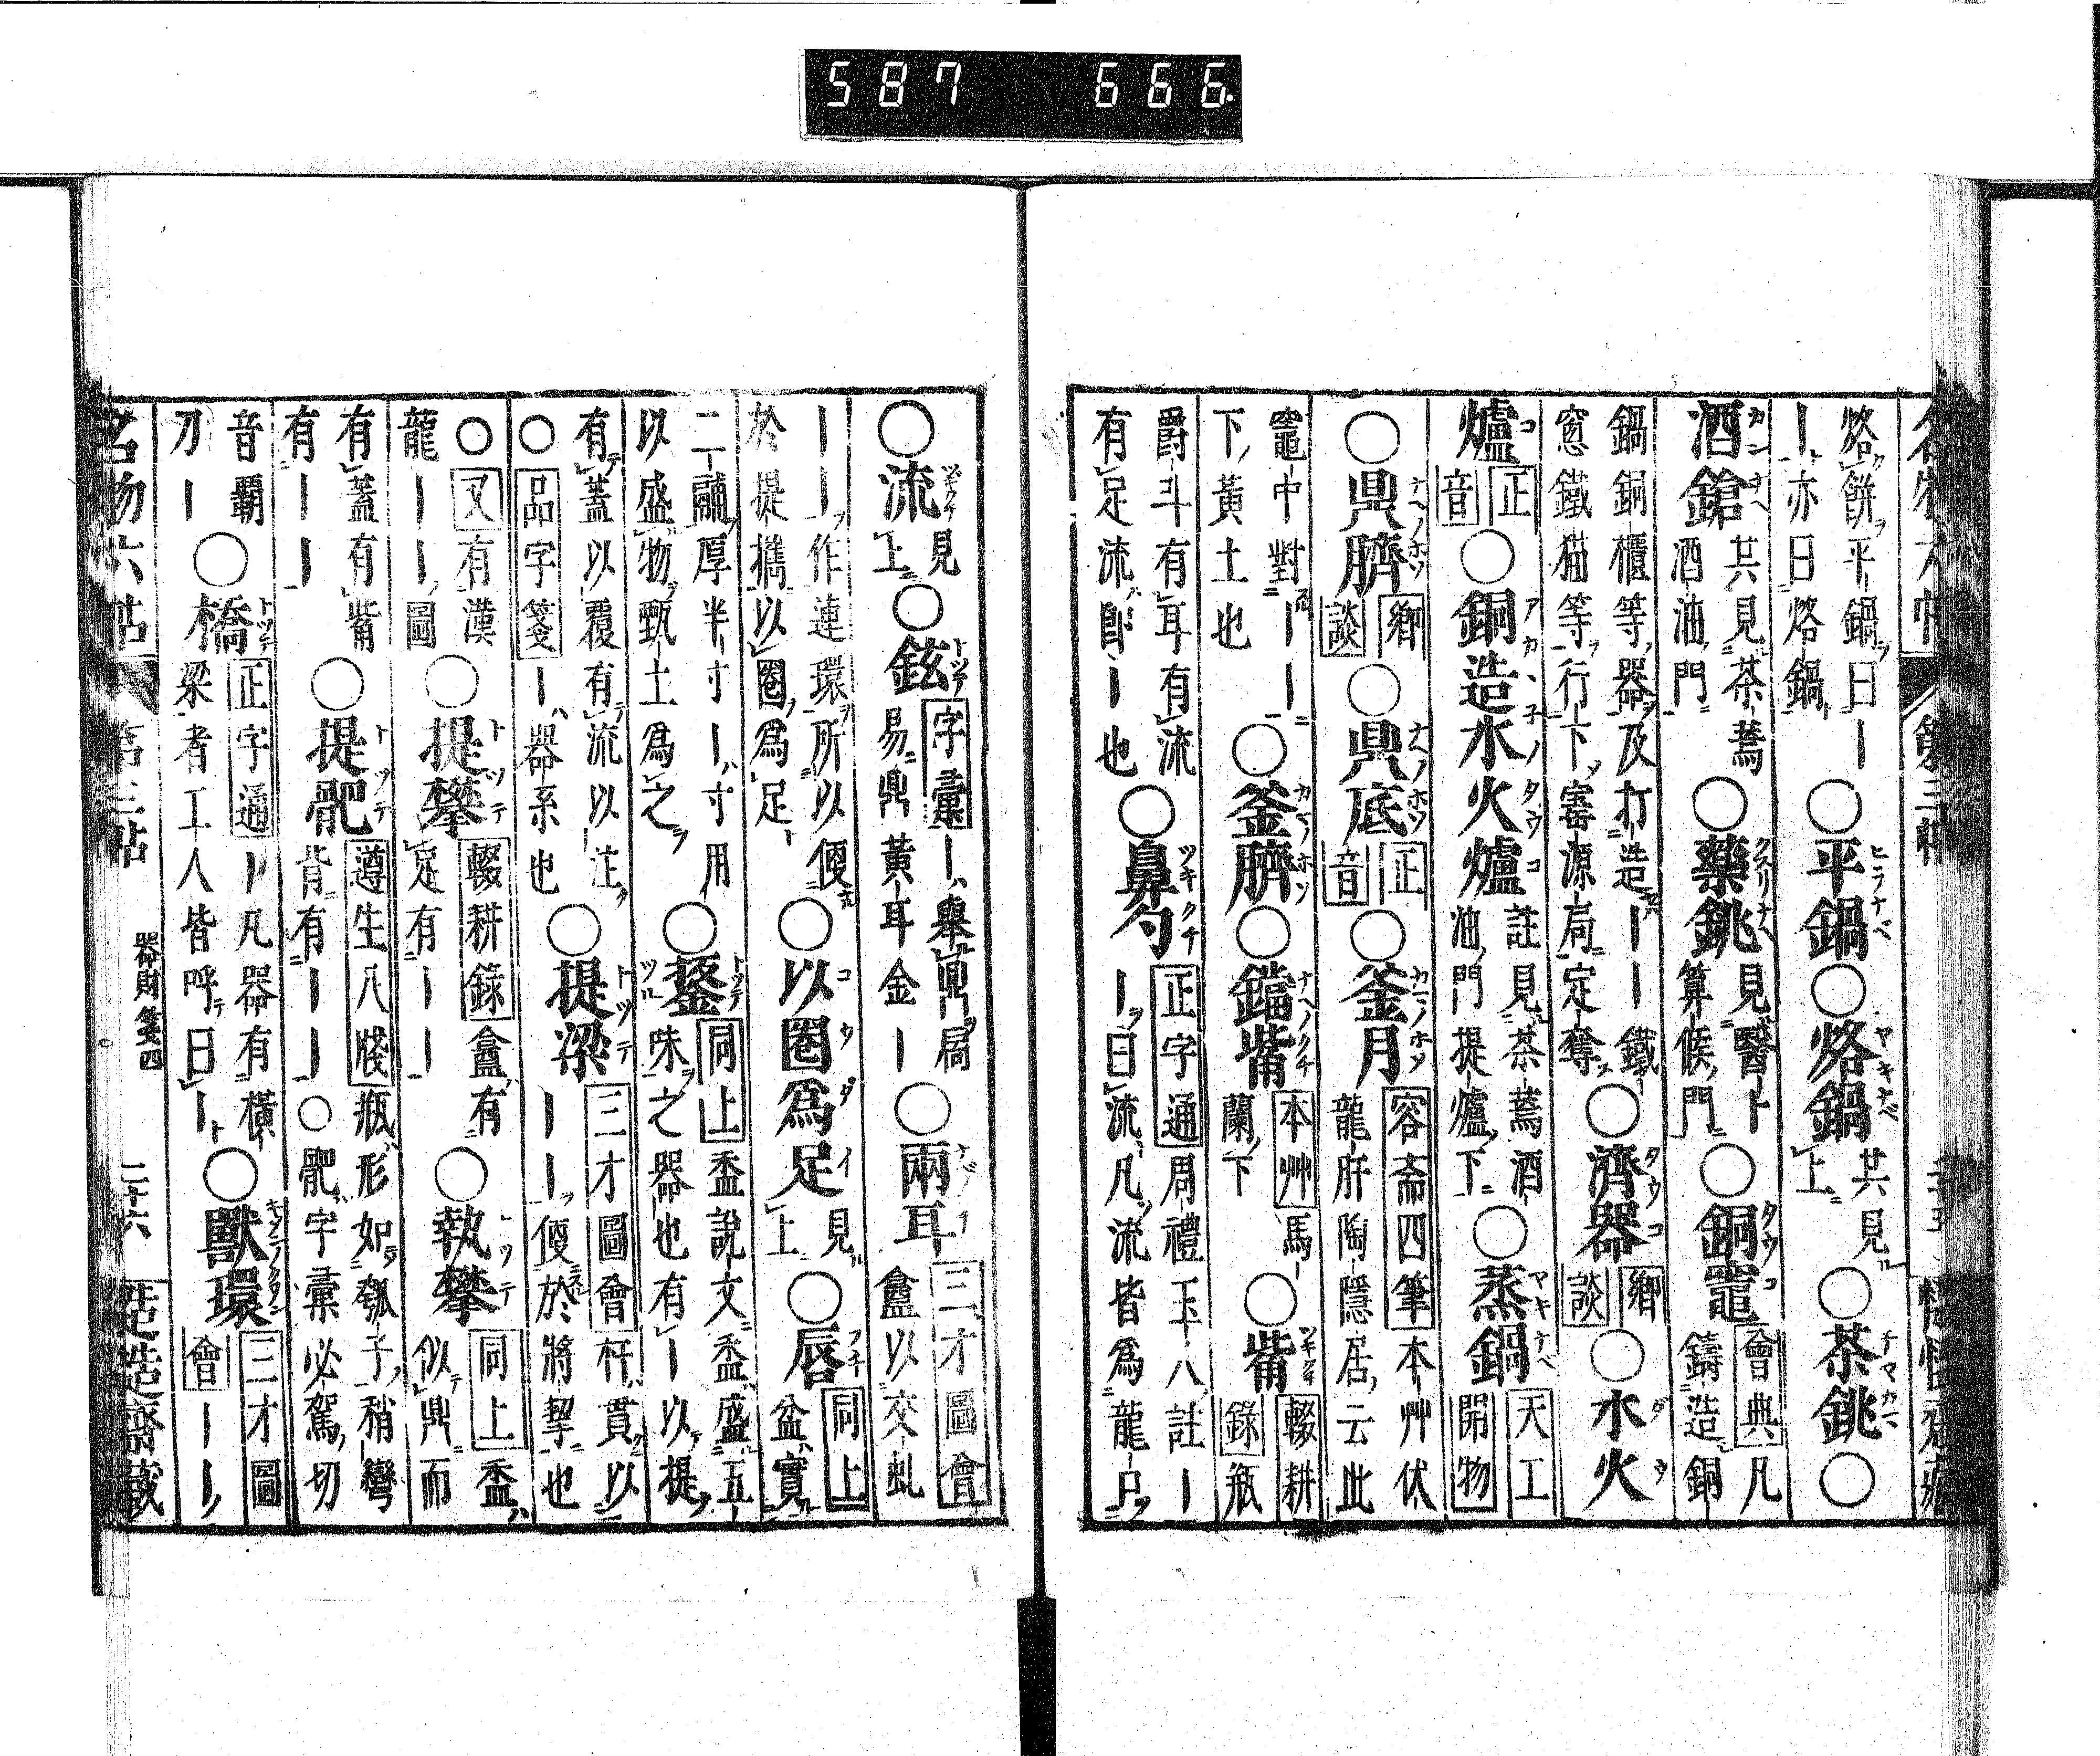 587 666
第三帖
烙餅平鍋曰｜
｜亦曰烙鍋
○平鍋○烙鍋
共見
上
○茶銚○
酒鎗
共見茶蔫
酒油門
○藥銚
見醫卜
算候門
○銅竈
會典凡
鑄造銅
鍋銅櫃等器及打造｜｜鐵
窓鐵猫等行下寳源局定奪
○濟器
鄉
談
○水火
爐
正
音
○銅造水火爐
註見茶蔫酒
油門提爐下
○蒸鍋
天工
開物
○鼎臍
鄉
談
○鼎底
正
音
○釜月
容斋四筆本艸伏
龍肝陶隱居云此
竈中對｜｜
下黃土也
○釜臍○鐺嘴
本艸馬
蘭下
○嘴
輟耕
錄瓶
爵斗有耳有流
有足流即｜也
○鼻勺
正字通周禮玉人註｜
｜曰流凡流皆爲龍口
○流
見
上
○鉉
字彙｜舉鼎扃
易鼎黃耳金｜
○兩耳
三才圖會
盦以交虬
｜｜作連環所以便
於提攜以圈爲足
○以圈爲足
見
上
○唇
同上
盆實
二鬴厚半寸｜寸用
以盛物甄土爲之
○鋬
同上盉說文盉盛五
味之器也有｜以提
有蓋以覆有流以注
○品字箋｜器系也
○提梁
三才圖會杅貫以
｜｜便於將挈也
○又有漢
龍｜｜圖
○提攀
輟耕錄盦有
足有｜｜
○執攀
同上盉
似鼎而
有蓋有嘴
有｜｜
○提靶
遵生八牋瓶形如瓠子稍彎
背有｜｜○靶字彙必駕切
音霸
刀｜
○橋
正字通｜凡器有橫
梁者工人皆呼曰｜
○獸環
三才圖
會｜｜
名物六帖
第三帖
器財箋四
二十六